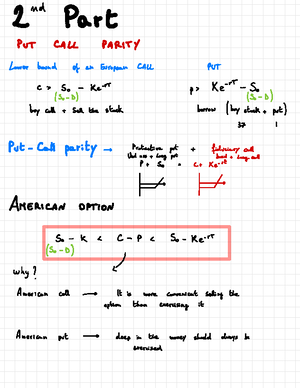 2nd Part
PUT CALL PARITY
Lower bound of an European CALL PUT
c > So - Ke-rT p > Ke-rT - So
(So-D) (So-D)
buy call + sell the stock borrow (buy stock + put)
Put-Call parity → Protective put + Fiduciary call
P + So = C + Ke-rT
AMERICAN OPTION
So - K < C - P < So - Ke-rT
(So-D)
why?
American call → It is more convenient selling the
option than exercising it
American put → deep in the money should always be
exercised